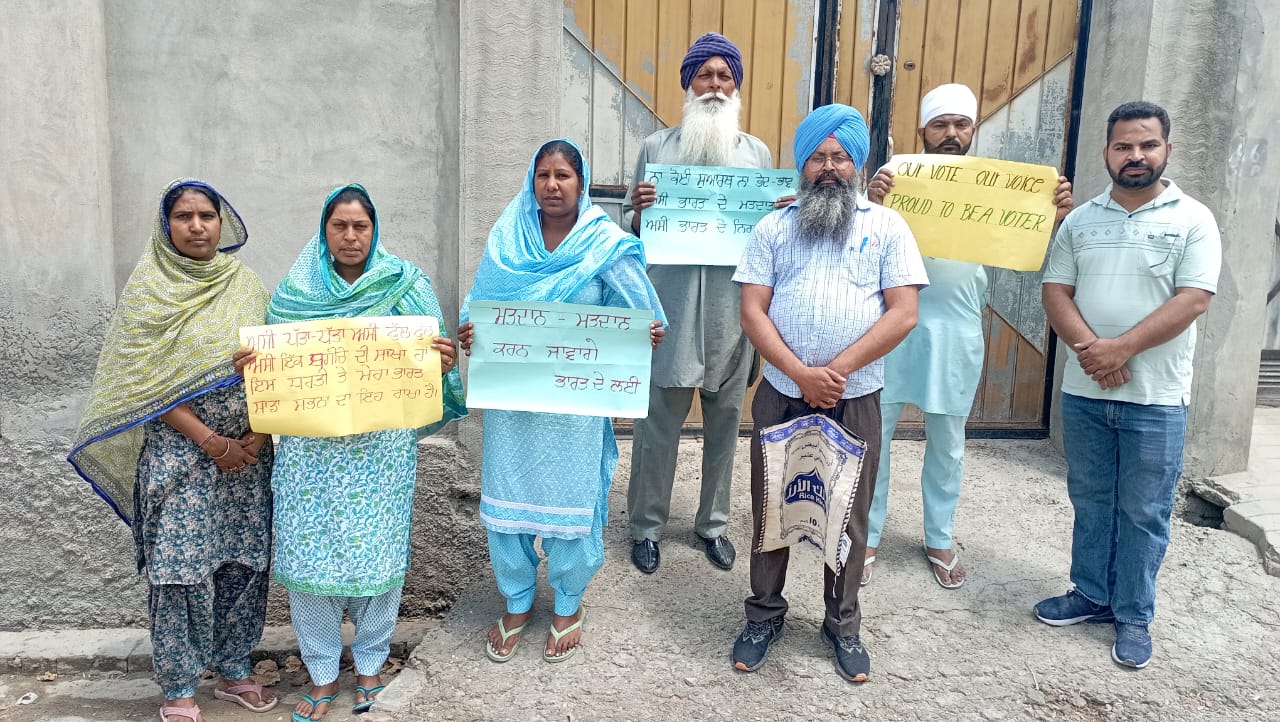 ਅਸੀਂ ਪੱਤਾ-ਪੱਤਾ ਅਸੀਂ ਫੁੱਲ ਫੁੱਲ
ਅਸੀਂ ਇੱਕ ਸਰੀਰ ਦੀ ਸਾਖਾ ਹਾਂ
ਇਸ ਧਰਤੀ ਤੇ ਮੇਰਾ ਭਾਰਤ
ਸਾਡਾ ਸਭਨਾਂ ਦਾ ਇਹ ਰਾਖਾ ਹੈ।
ਮਤਦਾਨ - ਮਤਦਾਨ
ਕਰਨ ਜਾਵਾਂਗੇ
ਭਾਰਤ ਦੇ ਲਈ
ਨਾ ਕੋਈ ਸੁਆਰਥ ਨਾ ਭੇਦ-ਭਾਵ
ਭਾਰਤ ਦੇ
ਅਸੀਂ ਭਾਰਤ ਦੇ
OUR VOTE OUR VOICE
PROUD TO BE A VOTER
Rice